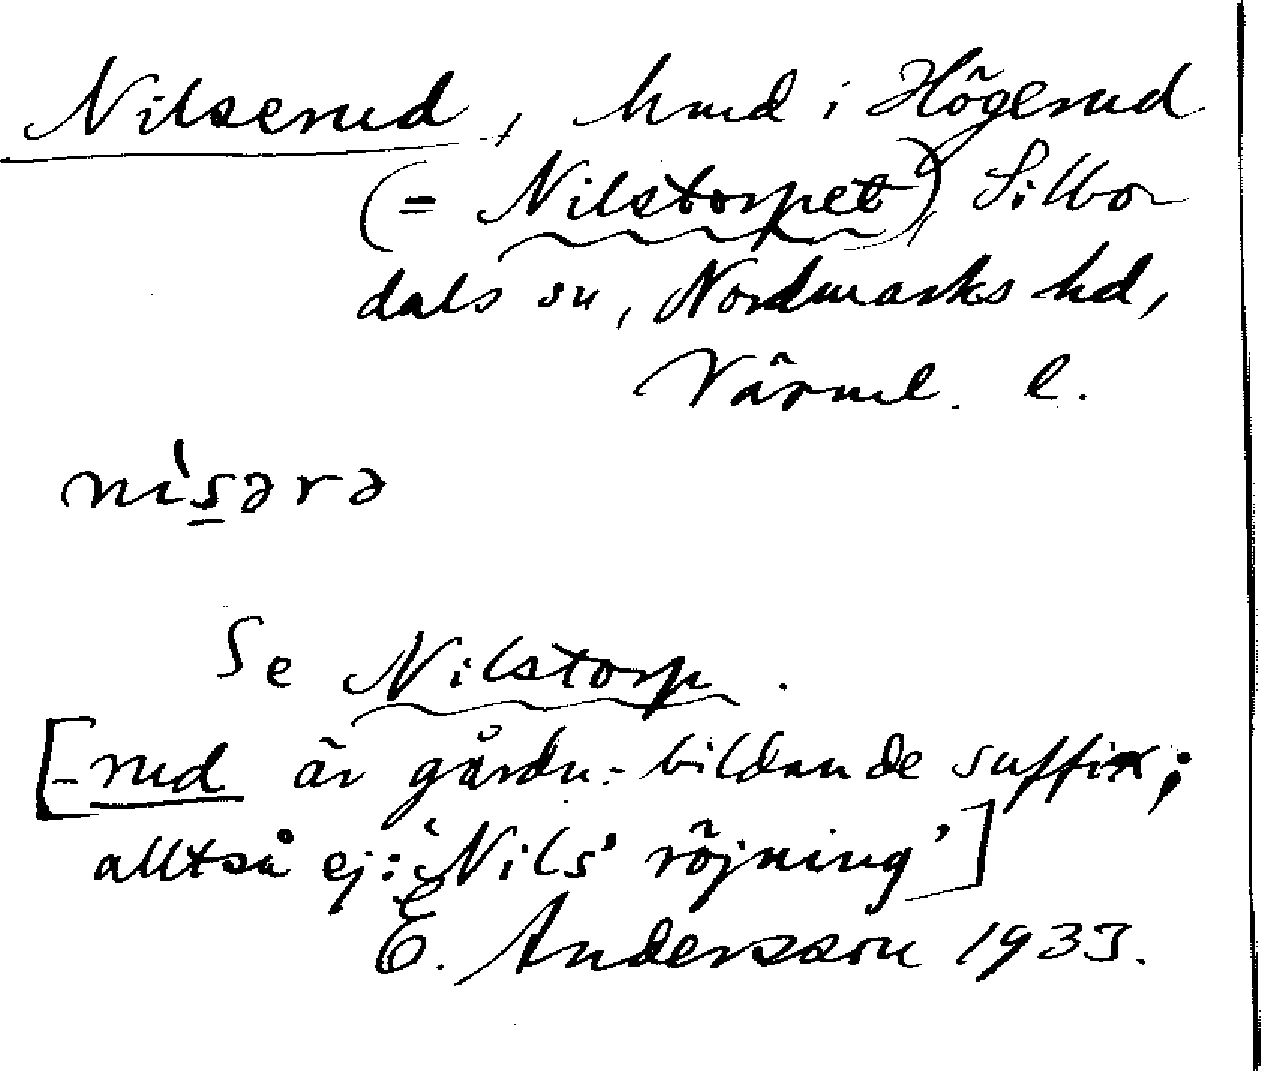 Nilserud, hmd i Högerud
(= Nilstorpet) Silbo
dals sn, Nordmarks hd,
Värml. l.
nìs̱ərə
Se Nilstorp.
[-rud är gårdn:-bildande suffix;
alltså ej: 'Nils' röjning']
E. Andersson 1933.